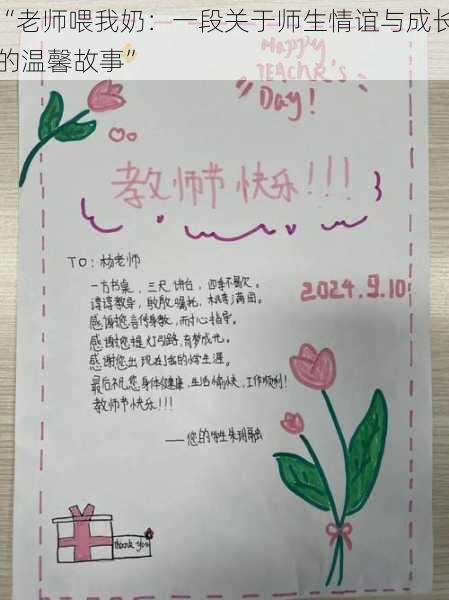 “老师喂我奶：一段关于师生情谊与成长
的温馨故事”
Happy
TEACheR's
Day!
教师节快乐!!!
TO:杨老师
一方书桌，三尺讲台，四季不辍欠。
谆谆教导，殷殷嘱托，桃李满园。
感谢您言传身教，耐心指导。
感谢您提灯引路，育梦成光。
感谢您出现在我的学生涯。
最后祝您身体健康，生活愉快，工作顺利!
教师节快乐!!!
2024.9.10
——您的学生朱玥融
Thank you